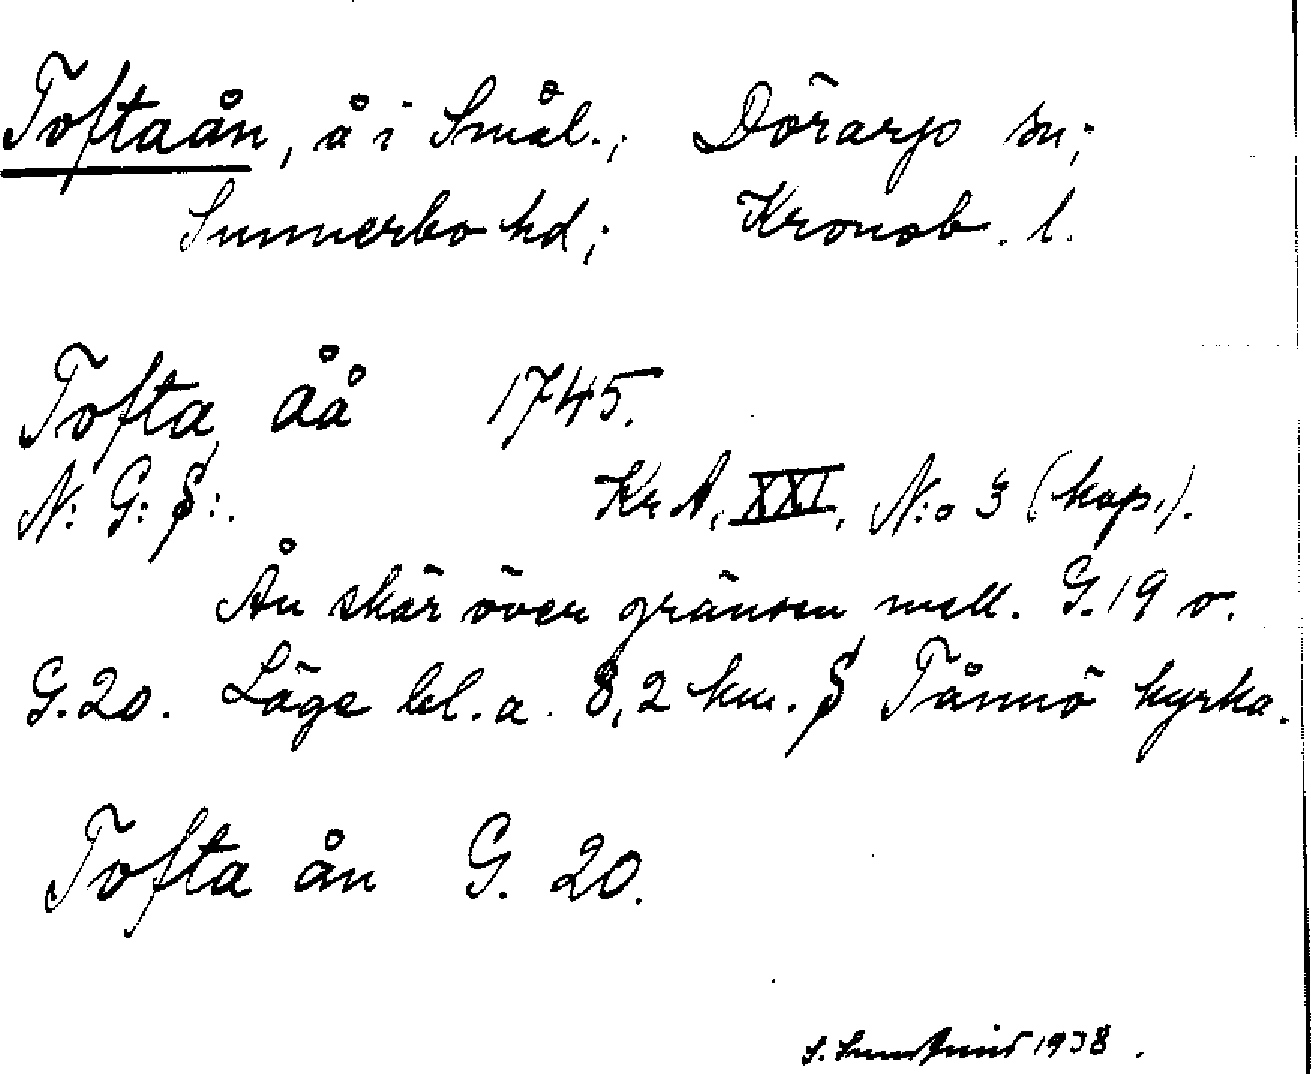 Toftaån, å i Smål.; Dörarp sn;
Sunnerbo hd; Kronob. l.
Tofta åå 1745.
N: G: S:. Kr A, XXI, N:o 3 (kop.).
Ån skär över gränsen mell. G. 19 o.
G. 20. Läge bl. a. 8,2 km. S Tånnö kyrka.
Tofta ån G. 20.
S. 1938.